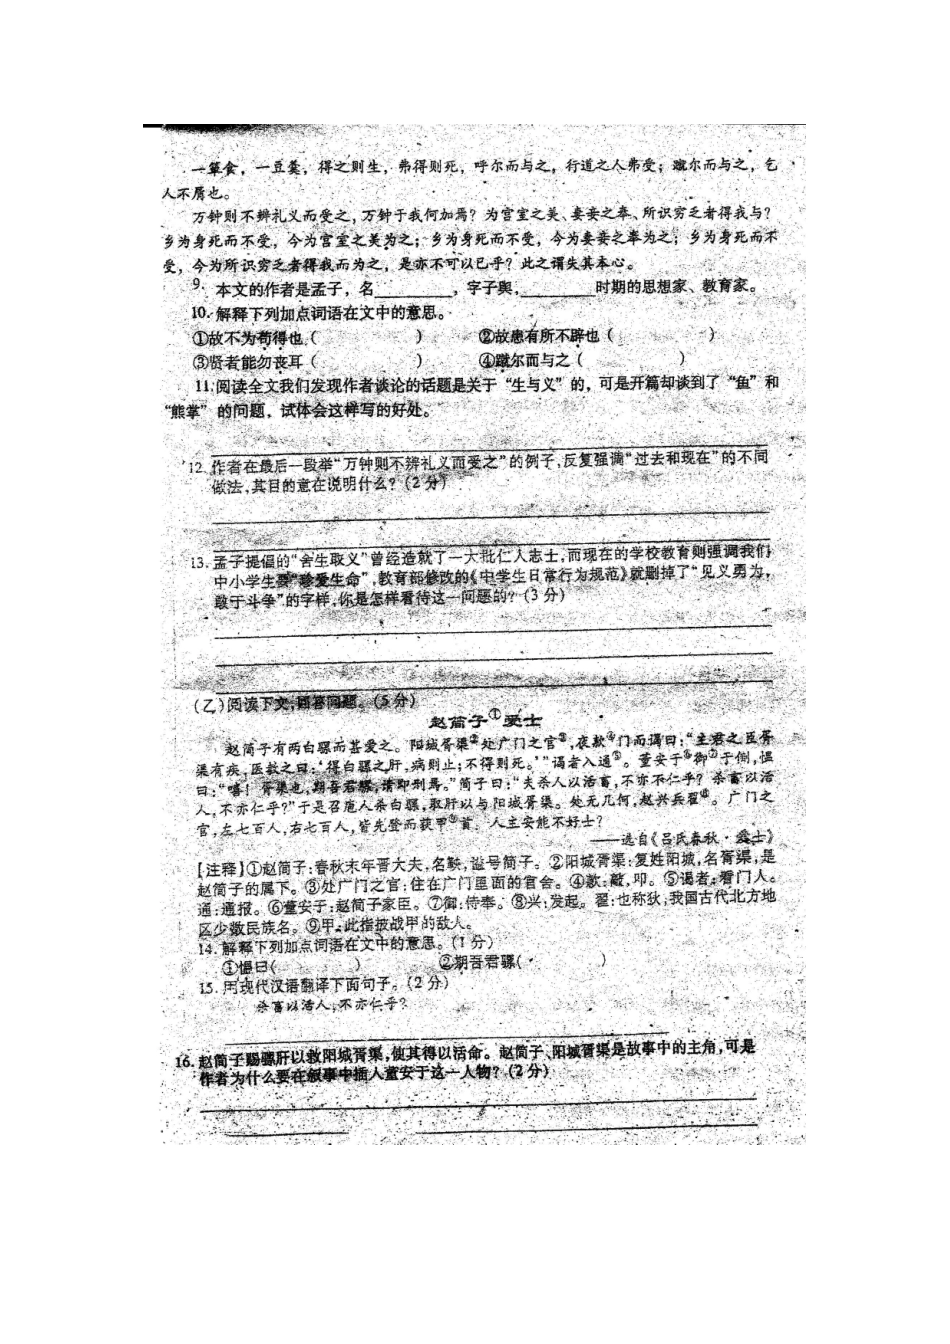 一箪食，一豆羹，得之则生，弗得则死，呼尔而与之，行道之人弗受；蹴尔而与之，乞
人不屑也。
万钟则不辨礼义而受之，万钟于我何加焉？为宫室之美、妻妾之奉、所识穷乏者得我与？
乡为身死而不受，今为宫室之美为之；乡为身死而不受，今为妻妾之奉为之；乡为身死而不
受，今为所识穷乏者得我而为之，是亦不可以已乎？此之谓失其本心。
9. 本文的作者是孟子，名________，字子舆，________时期的思想家、教育家。
10. 解释下列加点词语在文中的意思。
①故不为苟得也（ ） ②故患有所不辟也（ ）
③贤者能勿丧耳（ ） ④蹴尔而与之（ ）
11.阅读全文我们发现作者谈论的话题是关于“生与义”的，可是开篇却谈到了“鱼”和
“熊掌”的问题，试体会这样写的好处。
12.作者在最后一段举“万钟则不辨礼义而受之”的例子,反复强调“过去和现在”的不同
做法,其目的意在说明什么？(2分)
13.孟子提倡的“舍生取义”曾经造就了一大批仁人志士,而现在的学校教育则强调我们
中小学生要“珍爱生命”,教育部修改的《中学生日常行为规范》就删掉了“见义勇为，
敢于斗争”的字样,你是怎样看待这一问题的？(3分)
(乙)阅读下文,回答问题。(5分)
赵简子①爱士
赵简子有两白骡而甚爱之。阳城胥渠②处广门之官③,夜款④门而谒曰:“主君之臣胥
渠有疾,医教之曰:‘得白骡之肝,病则止;不得则死。’”谒者入通⑤。董安于⑥御⑦于侧,愠
曰:“嘻！胥渠也,期吾君骡,请即刑焉。”简子曰:“夫杀人以活畜,不亦不仁乎？杀畜以活
人,不亦仁乎?”于是召庖人杀白骡,取肝以与阳城胥渠。处无几何,赵兴兵翟⑧。广门之
官,左七百人,右七百人,皆先登而获甲⑨首。人主安能不好士?
——选自《吕氏春秋·爱士》
【注释】①赵简子:春秋末年晋大夫,名鞅,谥号简子。②阳城胥渠:复姓阳城,名胥渠,是
赵简子的属下。③处广门之官:住在广门里面的官舍。④款:敲,叩。⑤谒者:看门人。
通:通报。⑥董安于:赵简子家臣。⑦御:侍奉。⑧兴:发起。翟:也称狄,我国古代北方地
区少数民族名。⑨甲:此指披战甲的敌人。
14. 解释下列加点词语在文中的意思。(1分)
①愠曰( ) ②期吾君骡( )
15. 用现代汉语翻译下面句子。(2分)
杀畜以活人,不亦仁乎?
16. 赵简子赐骡肝以救阳城胥渠,使其得以活命。赵简子、阳城胥渠是故事中的主角,可是
作者为什么要在叙事中插入董安于这一人物？(2分)